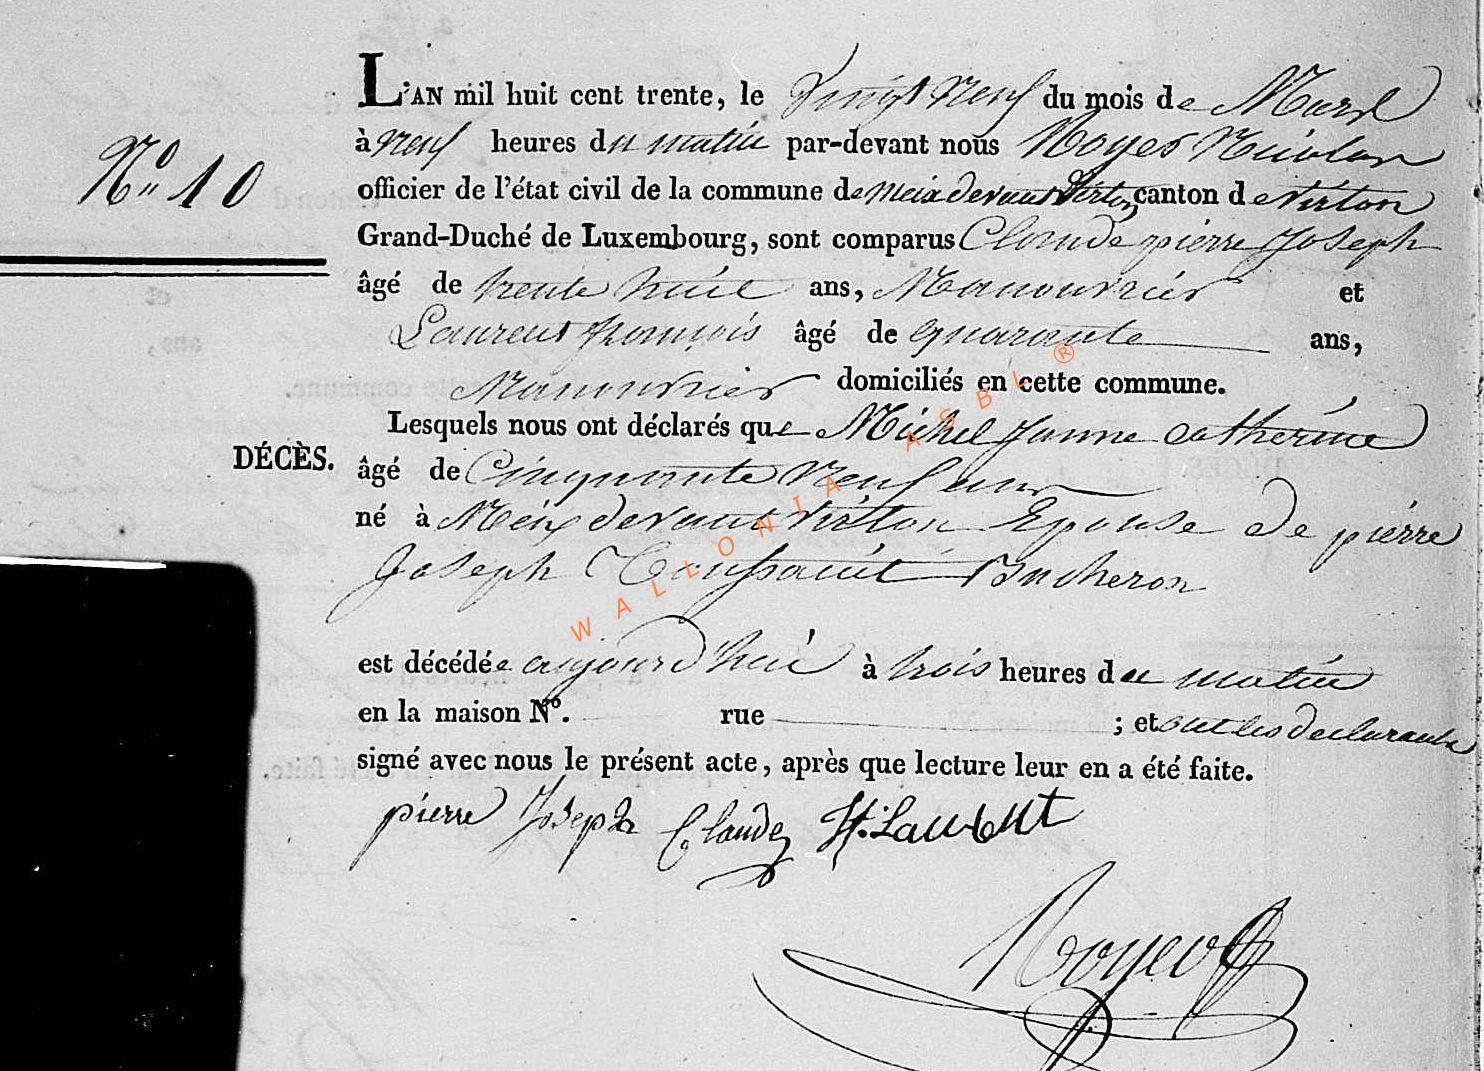 L'AN mil huit cent trente, le Vingt Neuf du mois de Mars
à neuf heures du matin par-devant nous Noyer Nicolas
N° 10
officier de l'état civil de la commune de Meix devant Virton canton de Virton
Grand-Duché de Luxembourg, sont comparus Claude pierre Joseph
âgé de trente huit ans, Manouvrier et
Laurent françois âgé de quarante ans,
Manouvrier domiciliés en cette commune.
Lesquels nous ont déclarés que Michel Janne Catherine
DÉCÈS.
âgé de Cinquante Neuf ans
né à Meix devant Virton Epouse de pierre
Joseph Toussaint Bucheron
est décédée aujourd'hui à trois heures du matin
en la maison N°. rue ; et ont les declarants
signé avec nous le présent acte, après que lecture leur en a été faite.
pierre Joseph Claude H. Laurent
WALLONIA ASBL ®